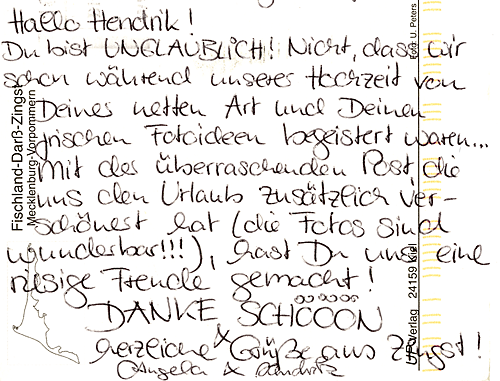 Hallo Hendrik!
Du bist UNGLAUBLICH! Nicht, dass wir
schon während unserer Hochzeit von
Deiner netten Art und Deinen
frischen Fotoideen begeistert waren...
Mit der überraschenden Post, die
uns den Urlaub zusätzlich ver-
schönert hat (die Fotos sind
wunderbar!!!), hast Du uns eine
riesige Freude gemacht!
DANKE SCHÖÖÖN
&
herzliche Grüße aus Zingst!
Angela &
Fischland-Darß-Zingst
Mecklenburg-Vorpommern
Foto U. Peters
Verlag 24159 Kiel